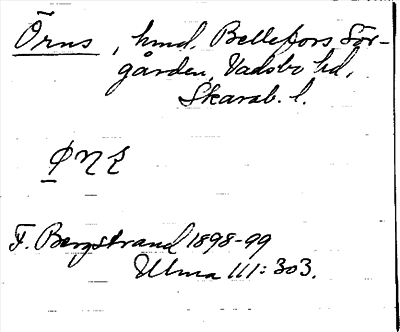 Örns, hmd. Bellefors Sör-
gården, Vadsbo hd,
Skarab. l.
F. Bergstrand 1898-99
Ulma 111:303.